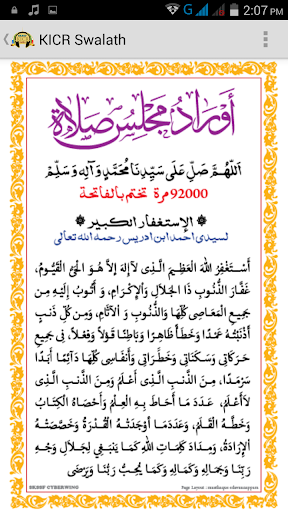 2:07 PM
KICR Swalath
أَوْرَادُ مَجْلِسِ صَلَاةِ
اَللّٰهُمَّ صَلِّ عَلٰى سَيِّدِنَا مُحَمَّدٍ وَآلِهِ وَسَلِّمْ
92000مرة تختم بالفاتحة
الإستغفار الكبير
لسيدى احمد ابن ادريس رحمه الله تعالى
أَسْتَغْفِرُ اللهَ الْعَظِيمَ الَّذِى لَآ إِلٰهَ إِلَّا هُوَ الْحَيَّ الْقَيُّومَ،
غَفَّارَ الذُّنُوبِ ذَا الْجَلَالِ وَالْإِكْرَامِ، وَ أَتُوبُ إِلَيْهِ مِنْ
جَمِيعِ الْمَعَاصِى كُلِّهَا وَالذُّنُوبِ وَ الْآثَامِ، وَمِنْ كُلِّ ذَنْبٍ
أَذْنَبْتُهُ عَمْدًا وَخَطَأً ظَاهِرًا وَبَاطِنًا قَوْلًا وَفِعْلًا، فِى جَمِيعِ
حَرَكَاتِى وَسَكَنَاتِى وَخَطَرَاتِى وَأَنْفَاسِى كُلِّهَا دَآئِمًا أَبَدًا
سَرْمَدًا، مِنَ الذَّنْبِ الَّذِى أَعْلَمُ وَمِنَ الذَّنْبِ الَّذِى
لَا أَعْلَمُ، عَدَدَ مَا أَحَاطَ بِهِ الْعِلْمُ وَأَحْصَاهُ الْكِتَابُ
وَخَطَّهُ الْقَلَمُ، وَعَدَدَمَا أَوْجَدَتْهُ الْقُدْرَةُ وَخَصَّصَتْهُ
الْإِرَادَةُ، وَمِدَادَ كَلِمَاتِ اللهِ كَمَا يَنْبَغِى لِجَلَالِ وَجْهِ
رَبِّنَا وَجَمَالِهِ وَكَمَالِهِ وَكَمَا يُحِبُّ رَبُّنَا وَيَرْضٰى
SKSSF CYBERWING